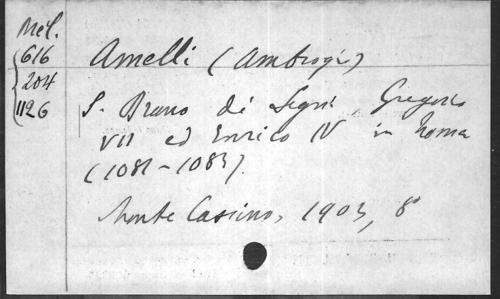 Mél.
616
204
1126
Amelli (Ambrogio)
S. Bruno di Segni, Gregorio
VII ed Enrico IV in Roma
(1081-1083).
Monte Cassino, 1903, 8°